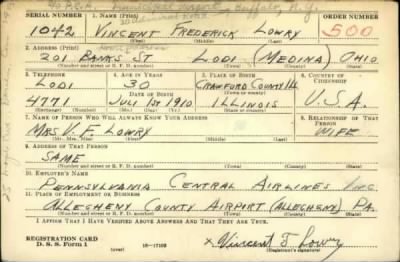 % P.C.A. Municipal Airport, Buffalo, N.Y.
SERIAL NUMBER 1. NAME (Print) ORDER NUMBER
1042 VINCENT FREDERICK LOWRY 500
(First) (Middle) (Last)
2. ADDRESS (Print)
201 BANKS ST LODI (MEDINA) OHIO
(Number and street or R. F. D. number) (Town) (County) (State)
3. TELEPHONE 4. AGE IN YEARS 5. PLACE OF BIRTH 6. COUNTRY OF CITIZENSHIP
LODI 30 CRAWFORD COUNTY ILL
(Exchange) DATE OF BIRTH (Town or county)
4771 JULY 1ST 1910 ILLINOIS U.S.A.
(Number) (Mo.) (Day) (Yr.) (State or country)
7. NAME OF PERSON WHO WILL ALWAYS KNOW YOUR ADDRESS 8. RELATIONSHIP OF THAT PERSON
MRS V. F. LOWRY WIFE
(Mr., Mrs., Miss) (First) (Middle) (Last)
9. ADDRESS OF THAT PERSON
SAME
(Number and street or R. F. D. number) (Town) (County) (State)
10. EMPLOYER'S NAME
PENNSYLVANIA CENTRAL AIRLINES INC.
11. PLACE OF EMPLOYMENT OR BUSINESS
ALLEGHENY COUNTY AIRPORT (ALLEGHENY) PA.
(Number and street or R. F. D. number) (Town) (County) (State)
I AFFIRM THAT I HAVE VERIFIED ABOVE ANSWERS AND THAT THEY ARE TRUE.
REGISTRATION CARD
D. S. S. Form 1 (over) 16-17105 x Vincent F Lowry
(Registrant's signature)